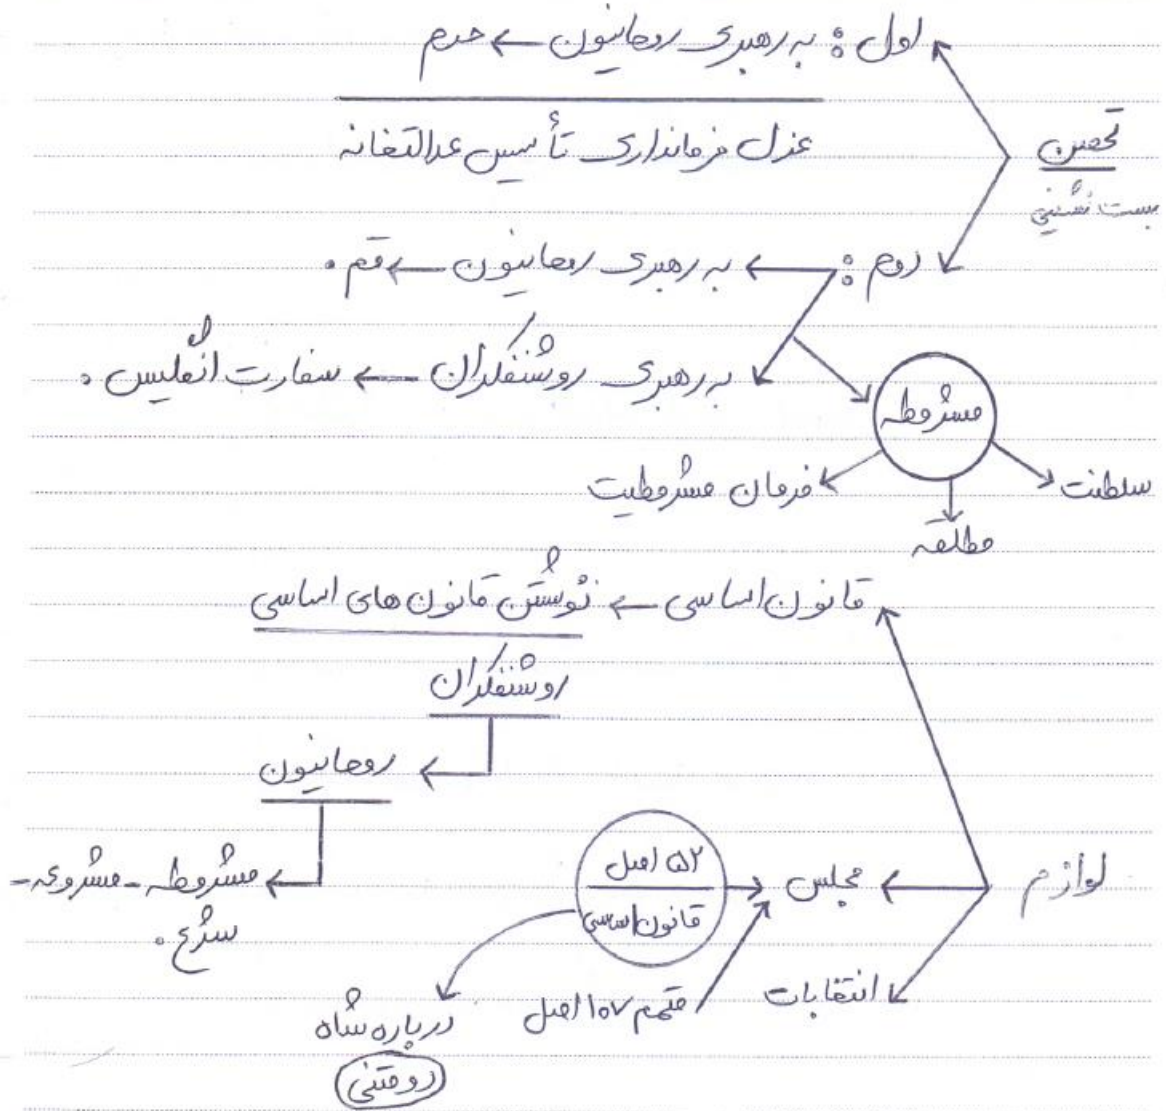 اول : به رهبری روحانیون ← حرم
عزل فرمانداری تأسیس عدالتخانه
تحصن
بست نشینی
دوم : ← به رهبری روحانیون ← قم .
به رهبری روشنفکران ← سفارت انگلیس .
مشروطه
سلطنت
مطلقه
فرمان مشروطیت
قانون اساسی ← نوشتن قانون های اساسی
روشنفکران
روحانیون
مشروطه - مشروعه -
شرع .
لوازم
مجلس
۵۲ اصل
قانون اساسی
انتخابات
متمم ۱۰۷ اصل
درباره شاه
دو متنی